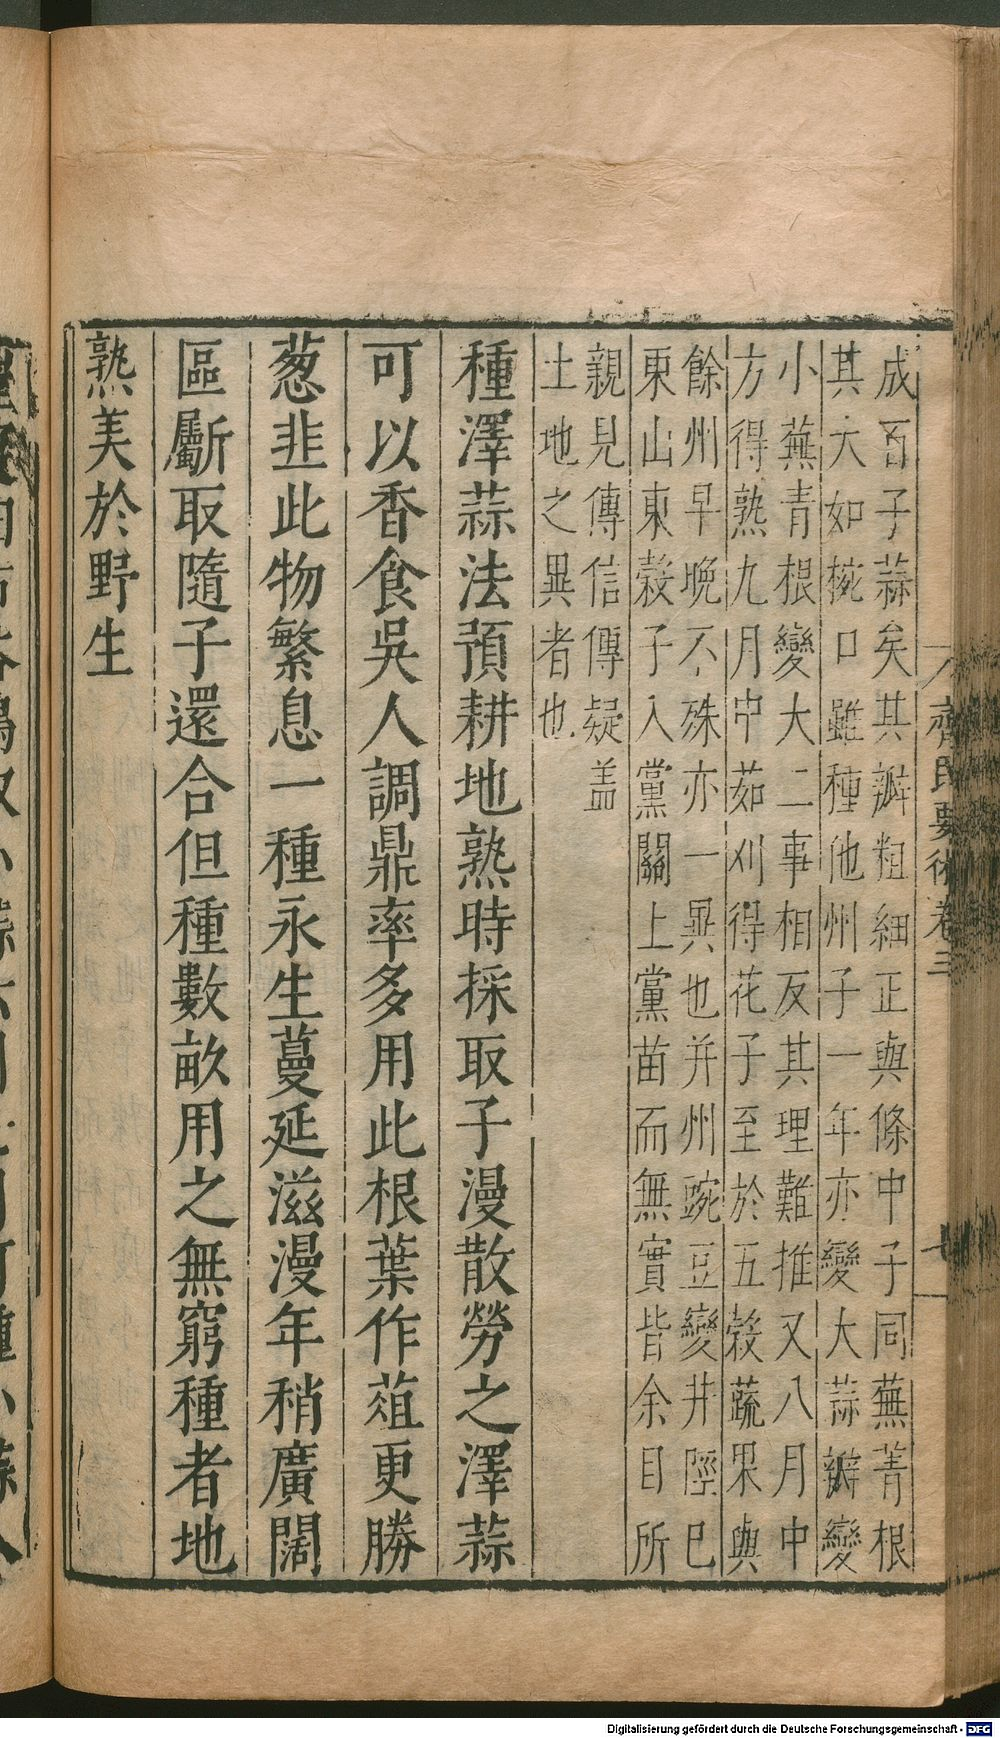 齊民要術卷三
成百子蒜矣其瓣粗細正與條中子同蕪菁根
其大如椀口雖種他州子一年亦變大蒜瓣變
小蕪青根變大二事相反其理難推又八月中
方得熟九月中茹刈得花子至於五榖蔬果與
餘州早晚不殊亦一異也并州豌豆變井陘巳
東山東榖子入黨關上黨苗而無實皆余目所
親見傳信傳疑盖
土地之異者也
種澤蒜法預耕地熟時採取子漫散勞之澤蒜
可以香食吳人調鼎率多用此根葉作葅更勝
葱韭此物繁息一種永生蔓延滋漫年稍廣闊
區斸取隨子還合但種數畝用之無窮種者地
熟美於野生
Digitalisierung gefördert durch die Deutsche Forschungsgemeinschaft - DFG